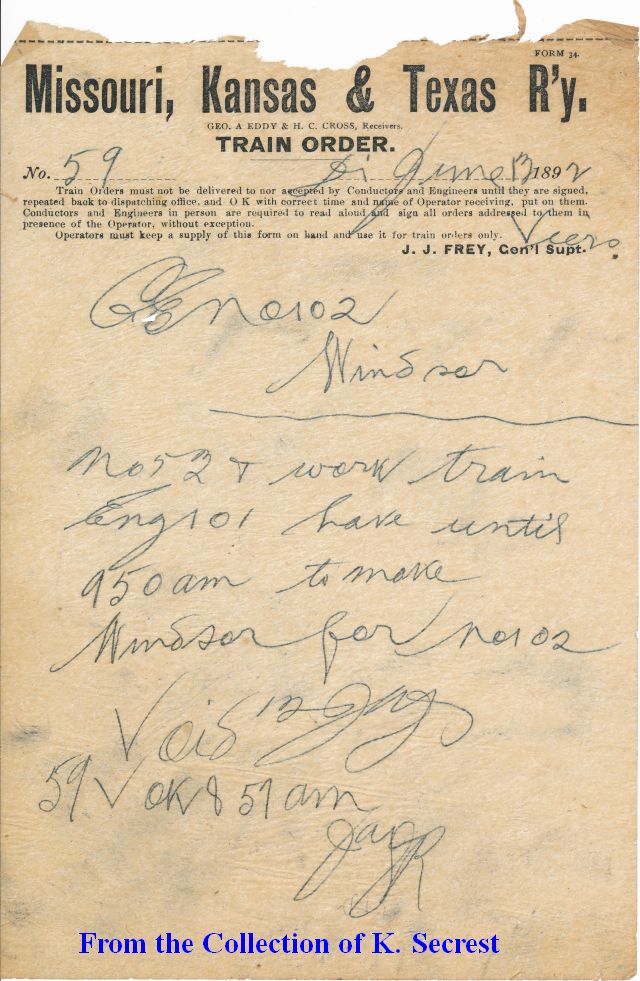 FORM 34.
Missouri, Kansas & Texas R'y.
GEO. A EDDY & H. C. CROSS, Receivers.
TRAIN ORDER.
No. 59 June 13 1892
Train Orders must not be delivered to nor accepted by Conductors and Engineers until they are signed,
repeated back to dispatching office, and O K with correct time and name of Operator receiving, put on them.
Conductors and Engineers in person are required to read aloud and sign all orders addressed to them in
presence of the Operator, without exception.
Operators must keep a supply of this form on hand and use it for train orders only.
J. J. FREY, Gen'l Supt.
C&E No102
Windsor
No52 & work train
Eng101 have until
950am to make
Windsor for no102
13
59 OK 857am
From the Collection of K. Secrest